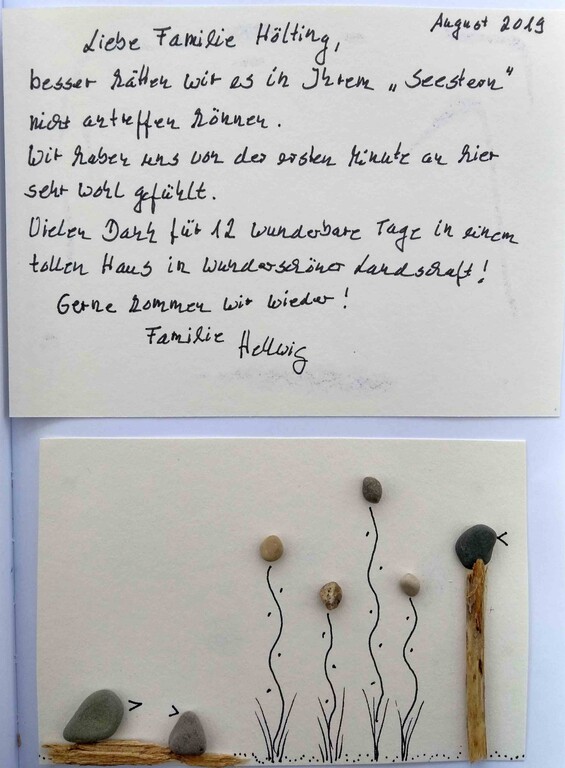 August 2019
Liebe Familie Hölting,
besser hätten wir es in Ihrem „Seestern“
nicht antreffen können.
Wir haben uns von der ersten Minute an hier
sehr wohl gefühlt.
Vielen Dank für 12 wunderbare Tage in einem
tollen Haus in wunderschöner Landschaft!
Gerne kommen wir wieder!
Familie Hellwig